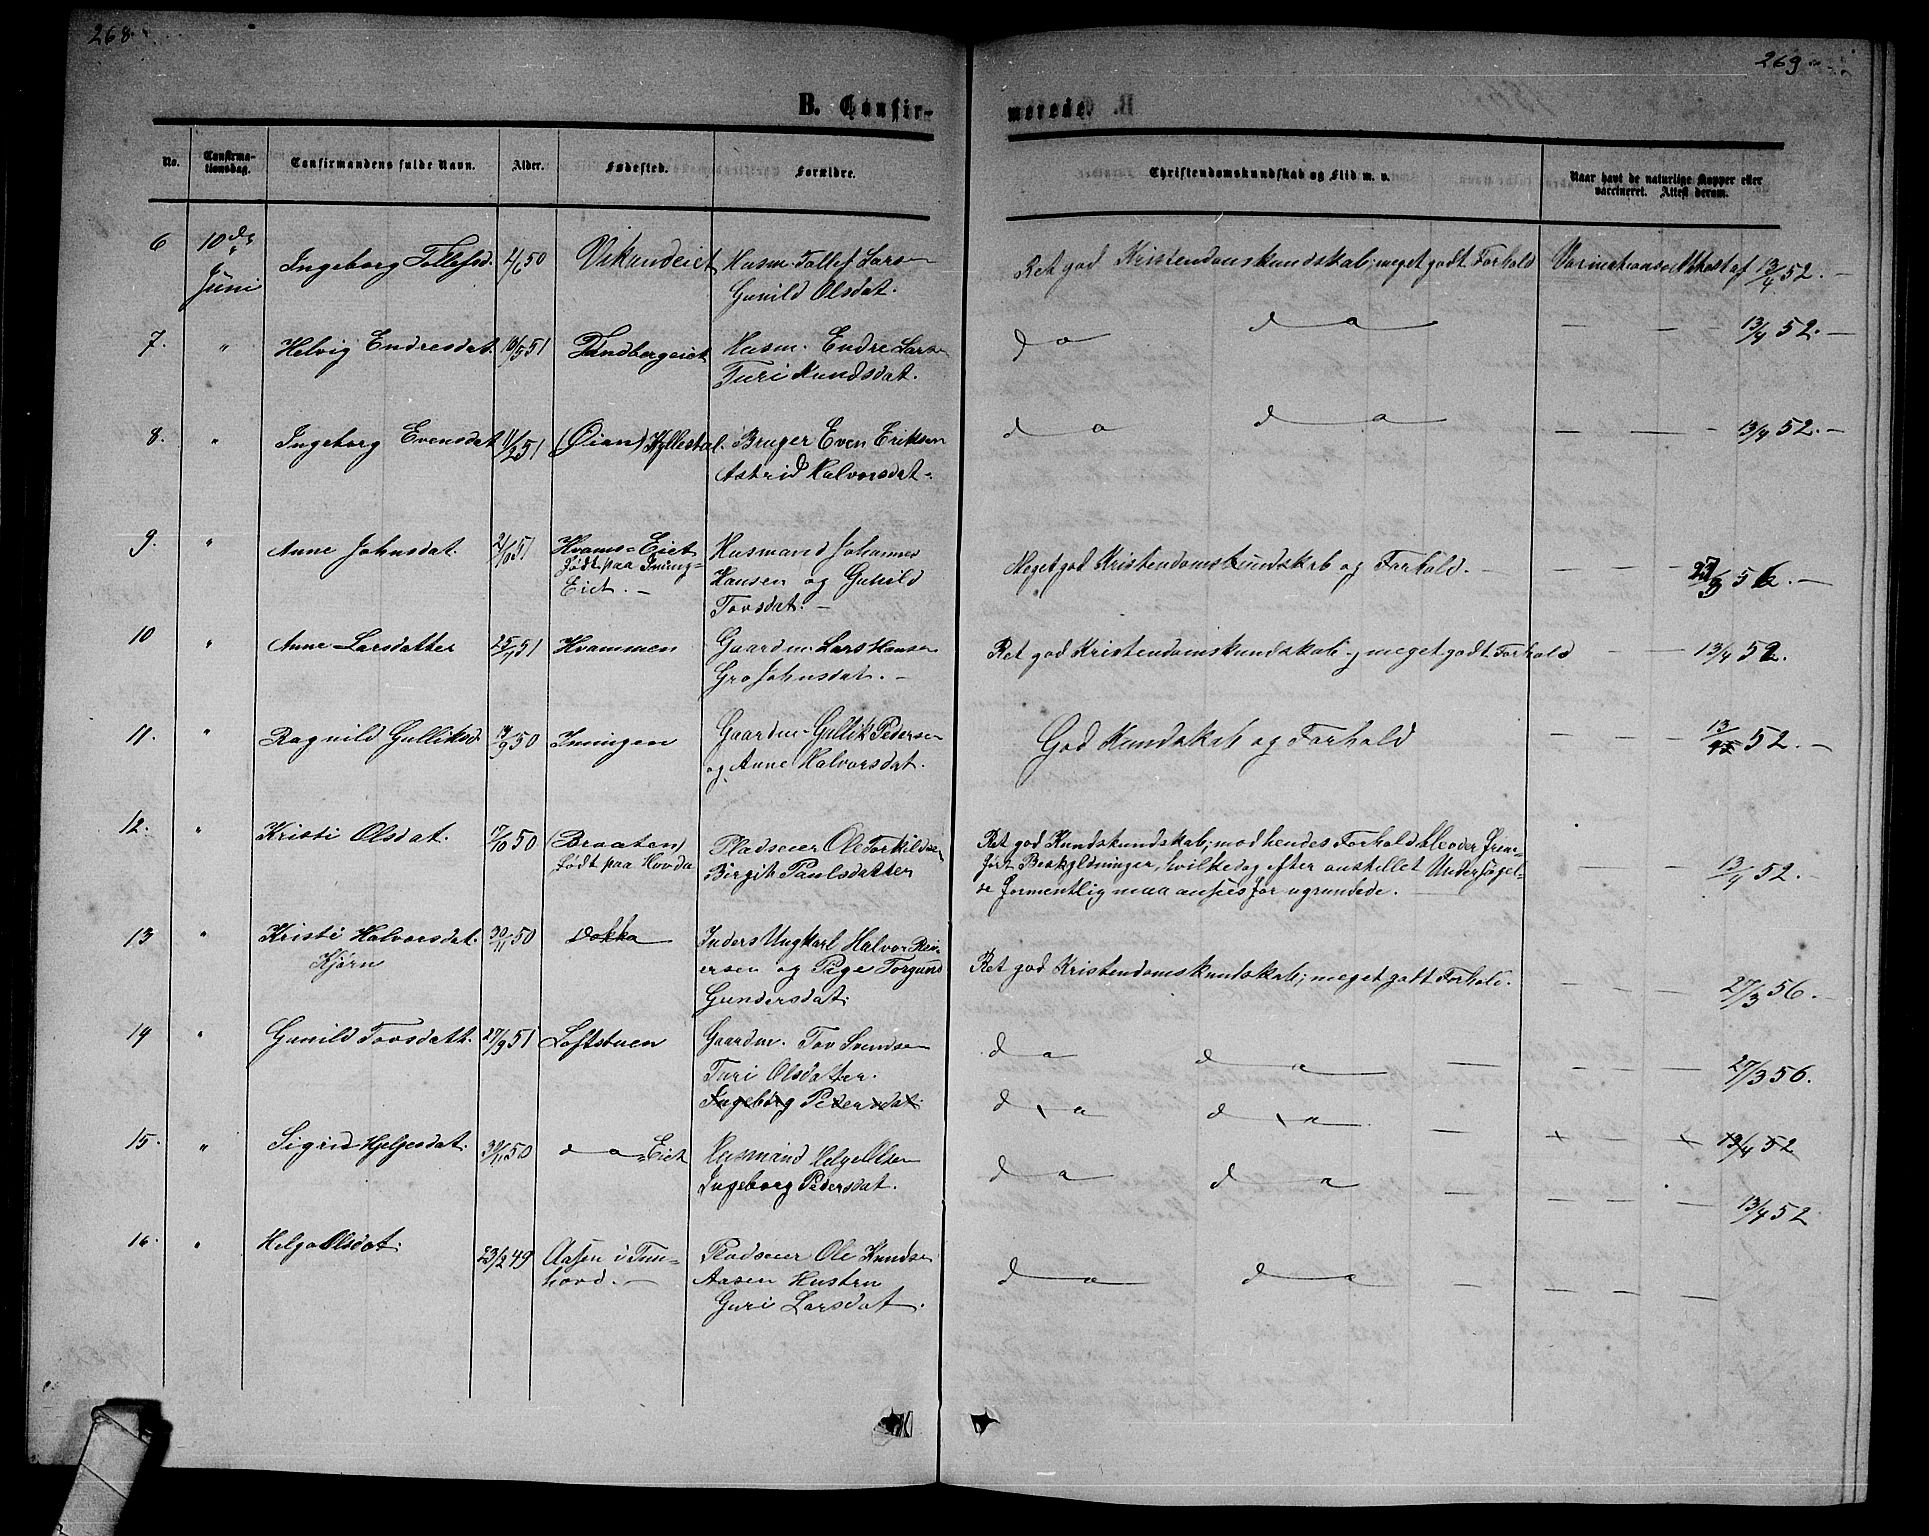 268.
269
B. Confir-
merede.
No.
Confirma-
tionsdag.
Confirmandens fulde Navn.
Alder.
Fødested.
Forældre.
Christendomskundskab og Flid m. v.
Naar havt de naturlige Kopper eller
vaccineret. Attest derom.
6 10de Juni Ingeborg Tollefsd. 4/6 50 Husm. Tollef Larsen
Gunild Olsdat.
Ret god Kristendomskundskab; meget godt Forhold 13/4 52. —
7. " Helvig Endresdat. 16/5 51 Tundbergeiet Husm. Endre Larsen
Turi Knudsdat.
do do — — — 13/4 52. —
8. " Ingeborg Evensdat 11/2 51 (Øian) Hyllestal. Bruger Even Eriksen
Astrid Halvorsdat.
do do — — — 13/4 52. —
9. " Anne Johnsdat. 51 Hvams=Eiet Husmand Johannes
født paa Inning= Hansen og Gunild
Eiet. — Tovsdat. —
Meget god Kristendomskundskab og Forhold. — — — 56. —
10 " Anne Larsdatter 25/1 51 Hvammen Gaardm. Lars Hansen
Gro Johnsdat. —
Ret god Kristendomskundskab; meget godt Forhold — — 13/4 52.
11. " Ragnild Gulliksd. 19/9 50 Inningen Gaardm. Gullik Pedersen
og Anne Halvorsdat.
God Kundskab og Forhold — — — 13/4 52. —
12. " Kristi Olsdat. 17/10 50 (Braaten) Pladseier Ole Torkildsen
født paa Hovda Birgit Paulsdatter
Ret god Kundskundskab; mod hendes Forhold blev der frem-
ført Beskyldninger, hvilke dog efter anstillet Undersøgel-
se formentlig maa ansees for ugrundede. — — 13/4 52. —
13 " Kristi Halvorsdat. 30/11 50 Dokka Inders Ungkarl Halvor Rei-
Kjørn ersen og Pige Torgund
Gundersdat.
Ret god Kristendomskundskab; meget godt Forhold. — — — 27/3 56. —
14 " Gunild Tovsdatt. 27/9 51 Loftstuen Gaardm. Tov Svendsen
Turi Olsdatter.
do do — — — 27/3 56.
Ingeborg Pedersdat.
do do — — — 13/4 52
15. " Sigrid Helgesdat. 30/11 50 do=Eiet Husmand Helge Olsen
Ingeborg Pedersdat.
do do — — — 13/4 52
16. " Helga Olsdat. 23/2 49 Aasen i Tun= Pladseier Ole Knudsen
hovd. — Aasen Hustru
Guri Larsdat.
do do — — — —